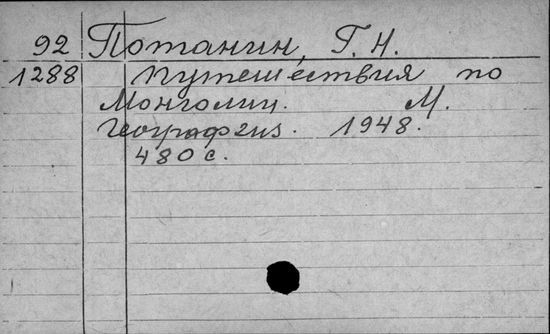 92 Потанин, Г. Н.
1288 Путешествия по
Монголии. М.
Географгиз. 1948.
480 с.